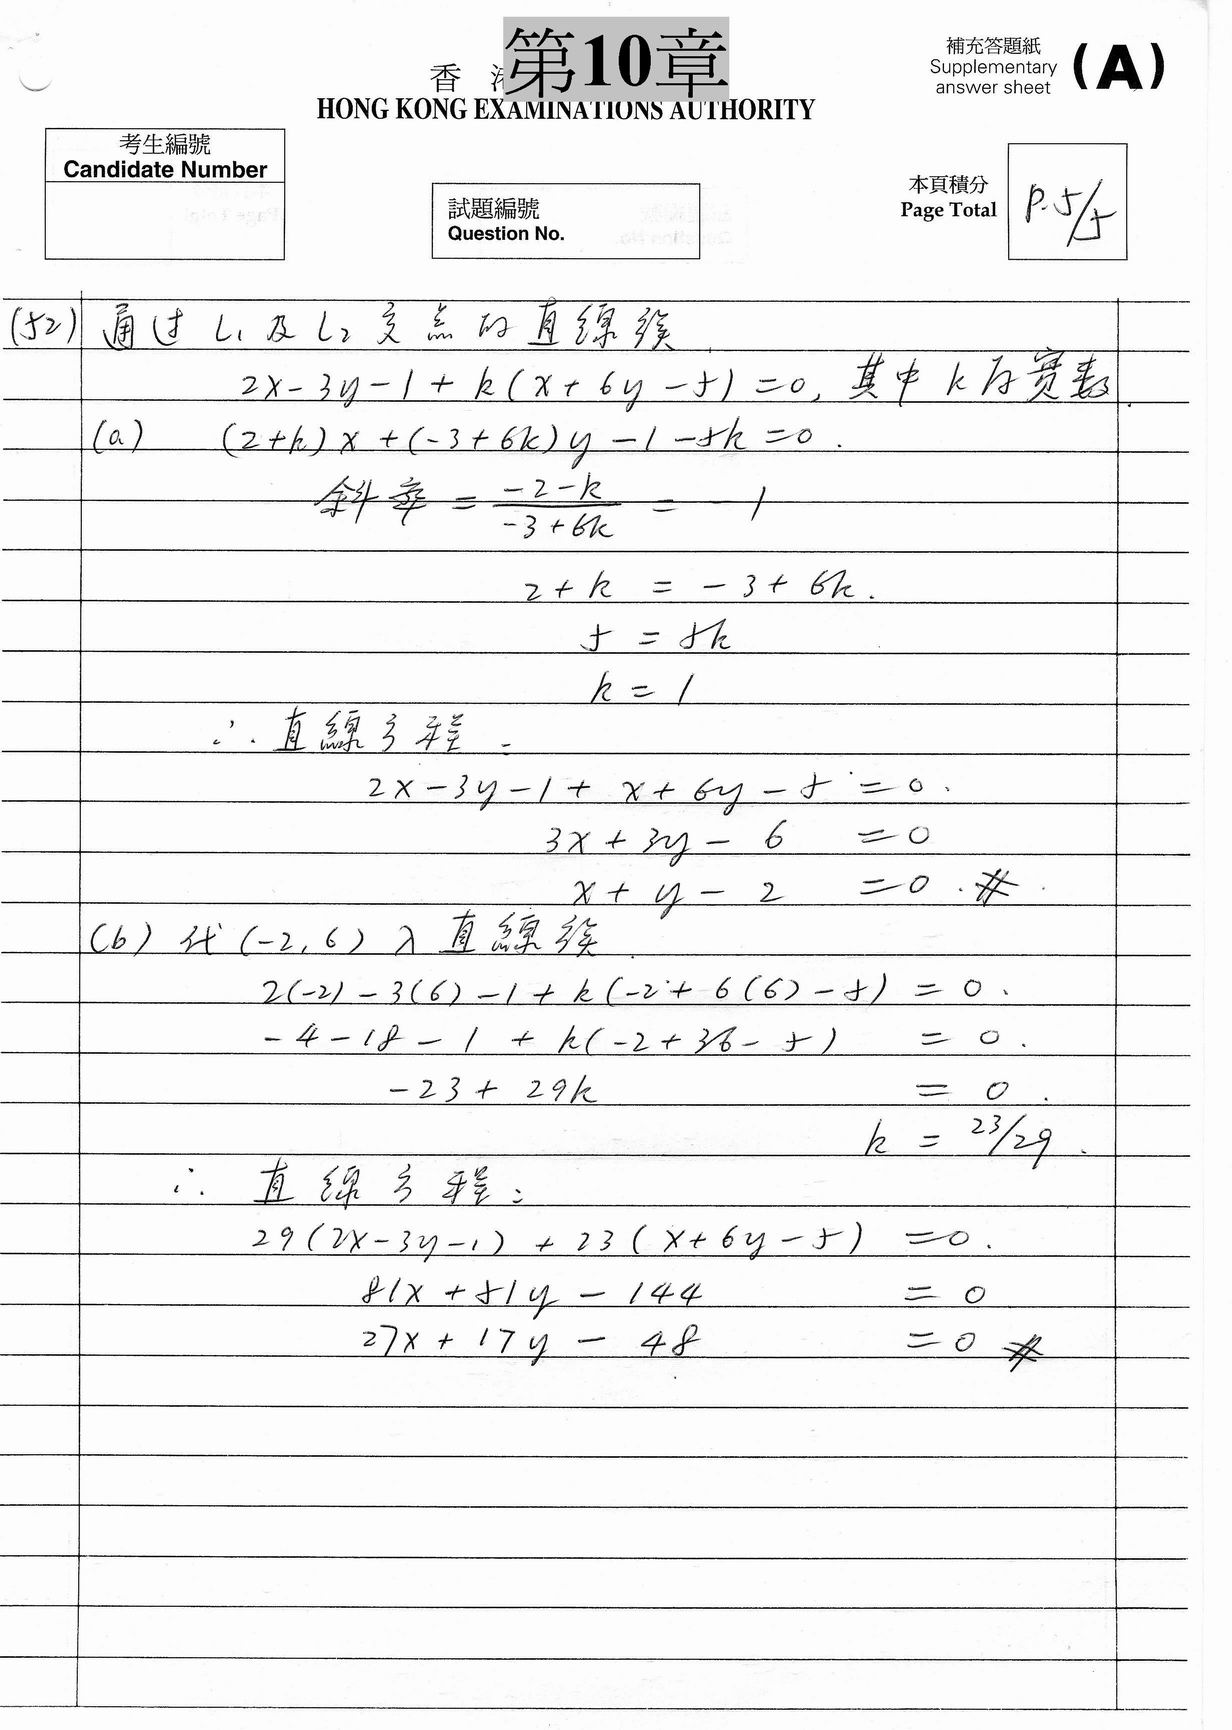 第10章
補充答題紙
Supplementary
answer sheet
(A)
香
HONG KONG EXAMINATIONS AUTHORITY
考生編號
Candidate Number
試題編號
Question No.
本頁積分
Page Total
P.5/5
(52) 通过 L₁ 及 L₂ 交点的直線族
2x-3y-1+k(x+6y-5)=0, 其中 k 为實數.
(a) (2+k)x+(-3+6k)y-1-5k=0.
斜率 = \frac{-2-k}{-3+6k} = -1
2+k = -3+6k.
5 = 5k
k = 1
∴ 直線方程:
2x-3y-1+x+6y-5=0.
3x+3y-6 =0
x+y-2 =0.#
(b) 代(-2,6)入直線族
2(-2)-3(6)-1+k(-2+6(6)-5) = 0.
-4-18-1+k(-2+36-5) = 0.
-23+29k = 0.
k = 23/29.
∴ 直線方程:
29(2x-3y-1)+23(x+6y-5) =0.
81x+51y-144 = 0
27x+17y-48 =0 #